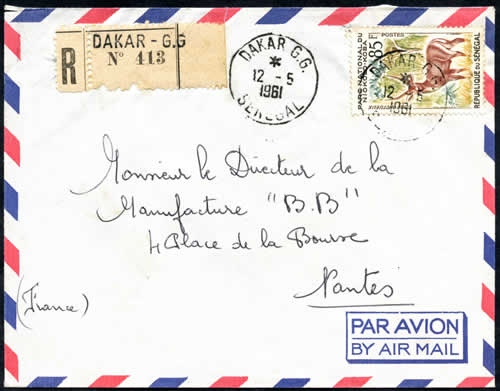 R
DAKAR - G.G
Nº 413
DAKAR G.G.
12 - 5
1961
SENEGAL
85F
POSTES
PARC NATIONAL DU
NIOKOLO-KOBA
REPUBLIQUE DU SENEGAL
DAKAR G.G.
12 - 5
1961
Monsieur le Directeur de la
Manufacture "B.B"
4 Place de la Bourse
Nantes
(France)
PAR AVION
BY AIR MAIL